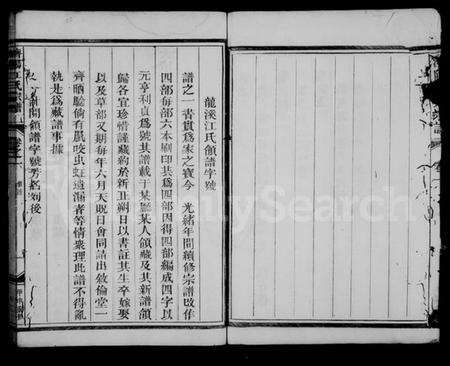 龍溪江氏領譜字號
譜之一書實爲家之寶今 光緒年間續修宗譜改作
四部每部六本刷印共爲四部因得四部編成四字以
元亨利貞爲號其譜載于某歷某人領藏及其新譜領
歸各宜珍惜謹藏約於新正朔日以書註其生卒嫁娶
以及草部又期每年六月天貺日會同請出敘倫堂一
齊晒驗倘有鼠咬虫蛀遺漏者等情衆理此譜不得亂
執是爲藏譜事據
開領譜字號芳名列後